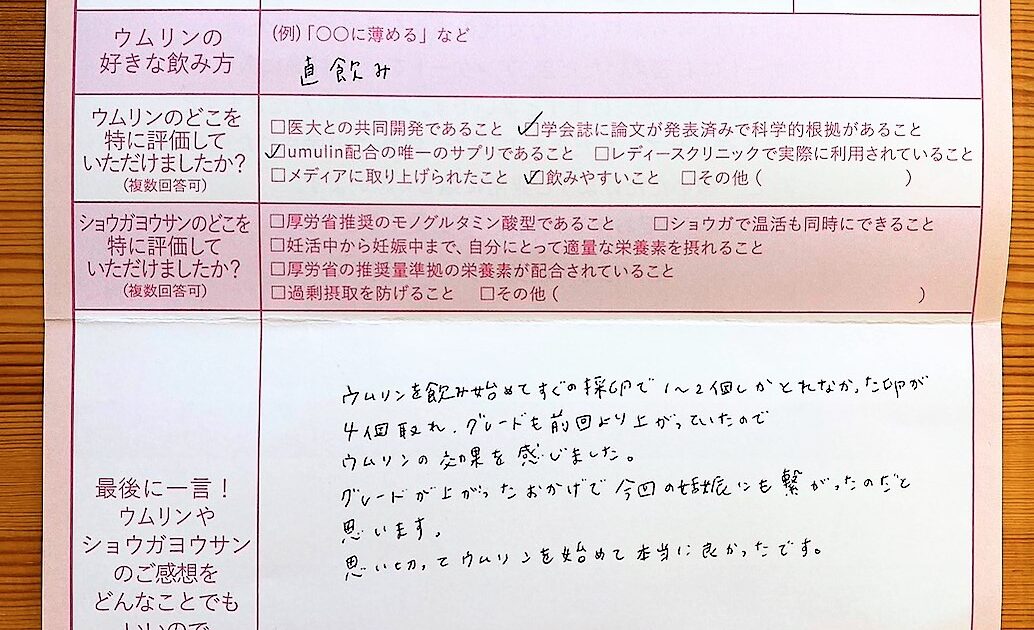 ウムリンの
好きな飲み方
(例)「〇〇に薄める」など
直飲み
ウムリンのどこを
特に評価して
いただけましたか?
(複数回答可)
□医大との共同開発であること ☑学会誌に論文が発表済みで科学的根拠があること
☑umulin配合の唯一のサプリであること □レディースクリニックで実際に利用されていること
□メディアに取り上げられたこと ☑飲みやすいこと □その他( )
ショウガヨウサンのどこを
特に評価して
いただけましたか?
(複数回答可)
□厚労省推奨のモノグルタミン酸型であること □ショウガで温活も同時にできること
□妊活中から妊娠中まで、自分にとって適量な栄養素を摂れること
□厚労省の推奨量準拠の栄養素が配合されていること
□過剰摂取を防げること □その他( )
最後に一言!
ウムリンや
ショウガヨウサン
のご感想を
どんなことでも
いいので
ウムリンを飲み始めてすぐの採卵で1〜2個しかとれなかった卵が
4個取れ、グレードも前回より上がっていたので
ウムリンの効果を感じました。
グレードが上がったおかげで今回の妊娠にも繋がったのだと
思います。
思い切ってウムリンを始めて本当に良かったです。